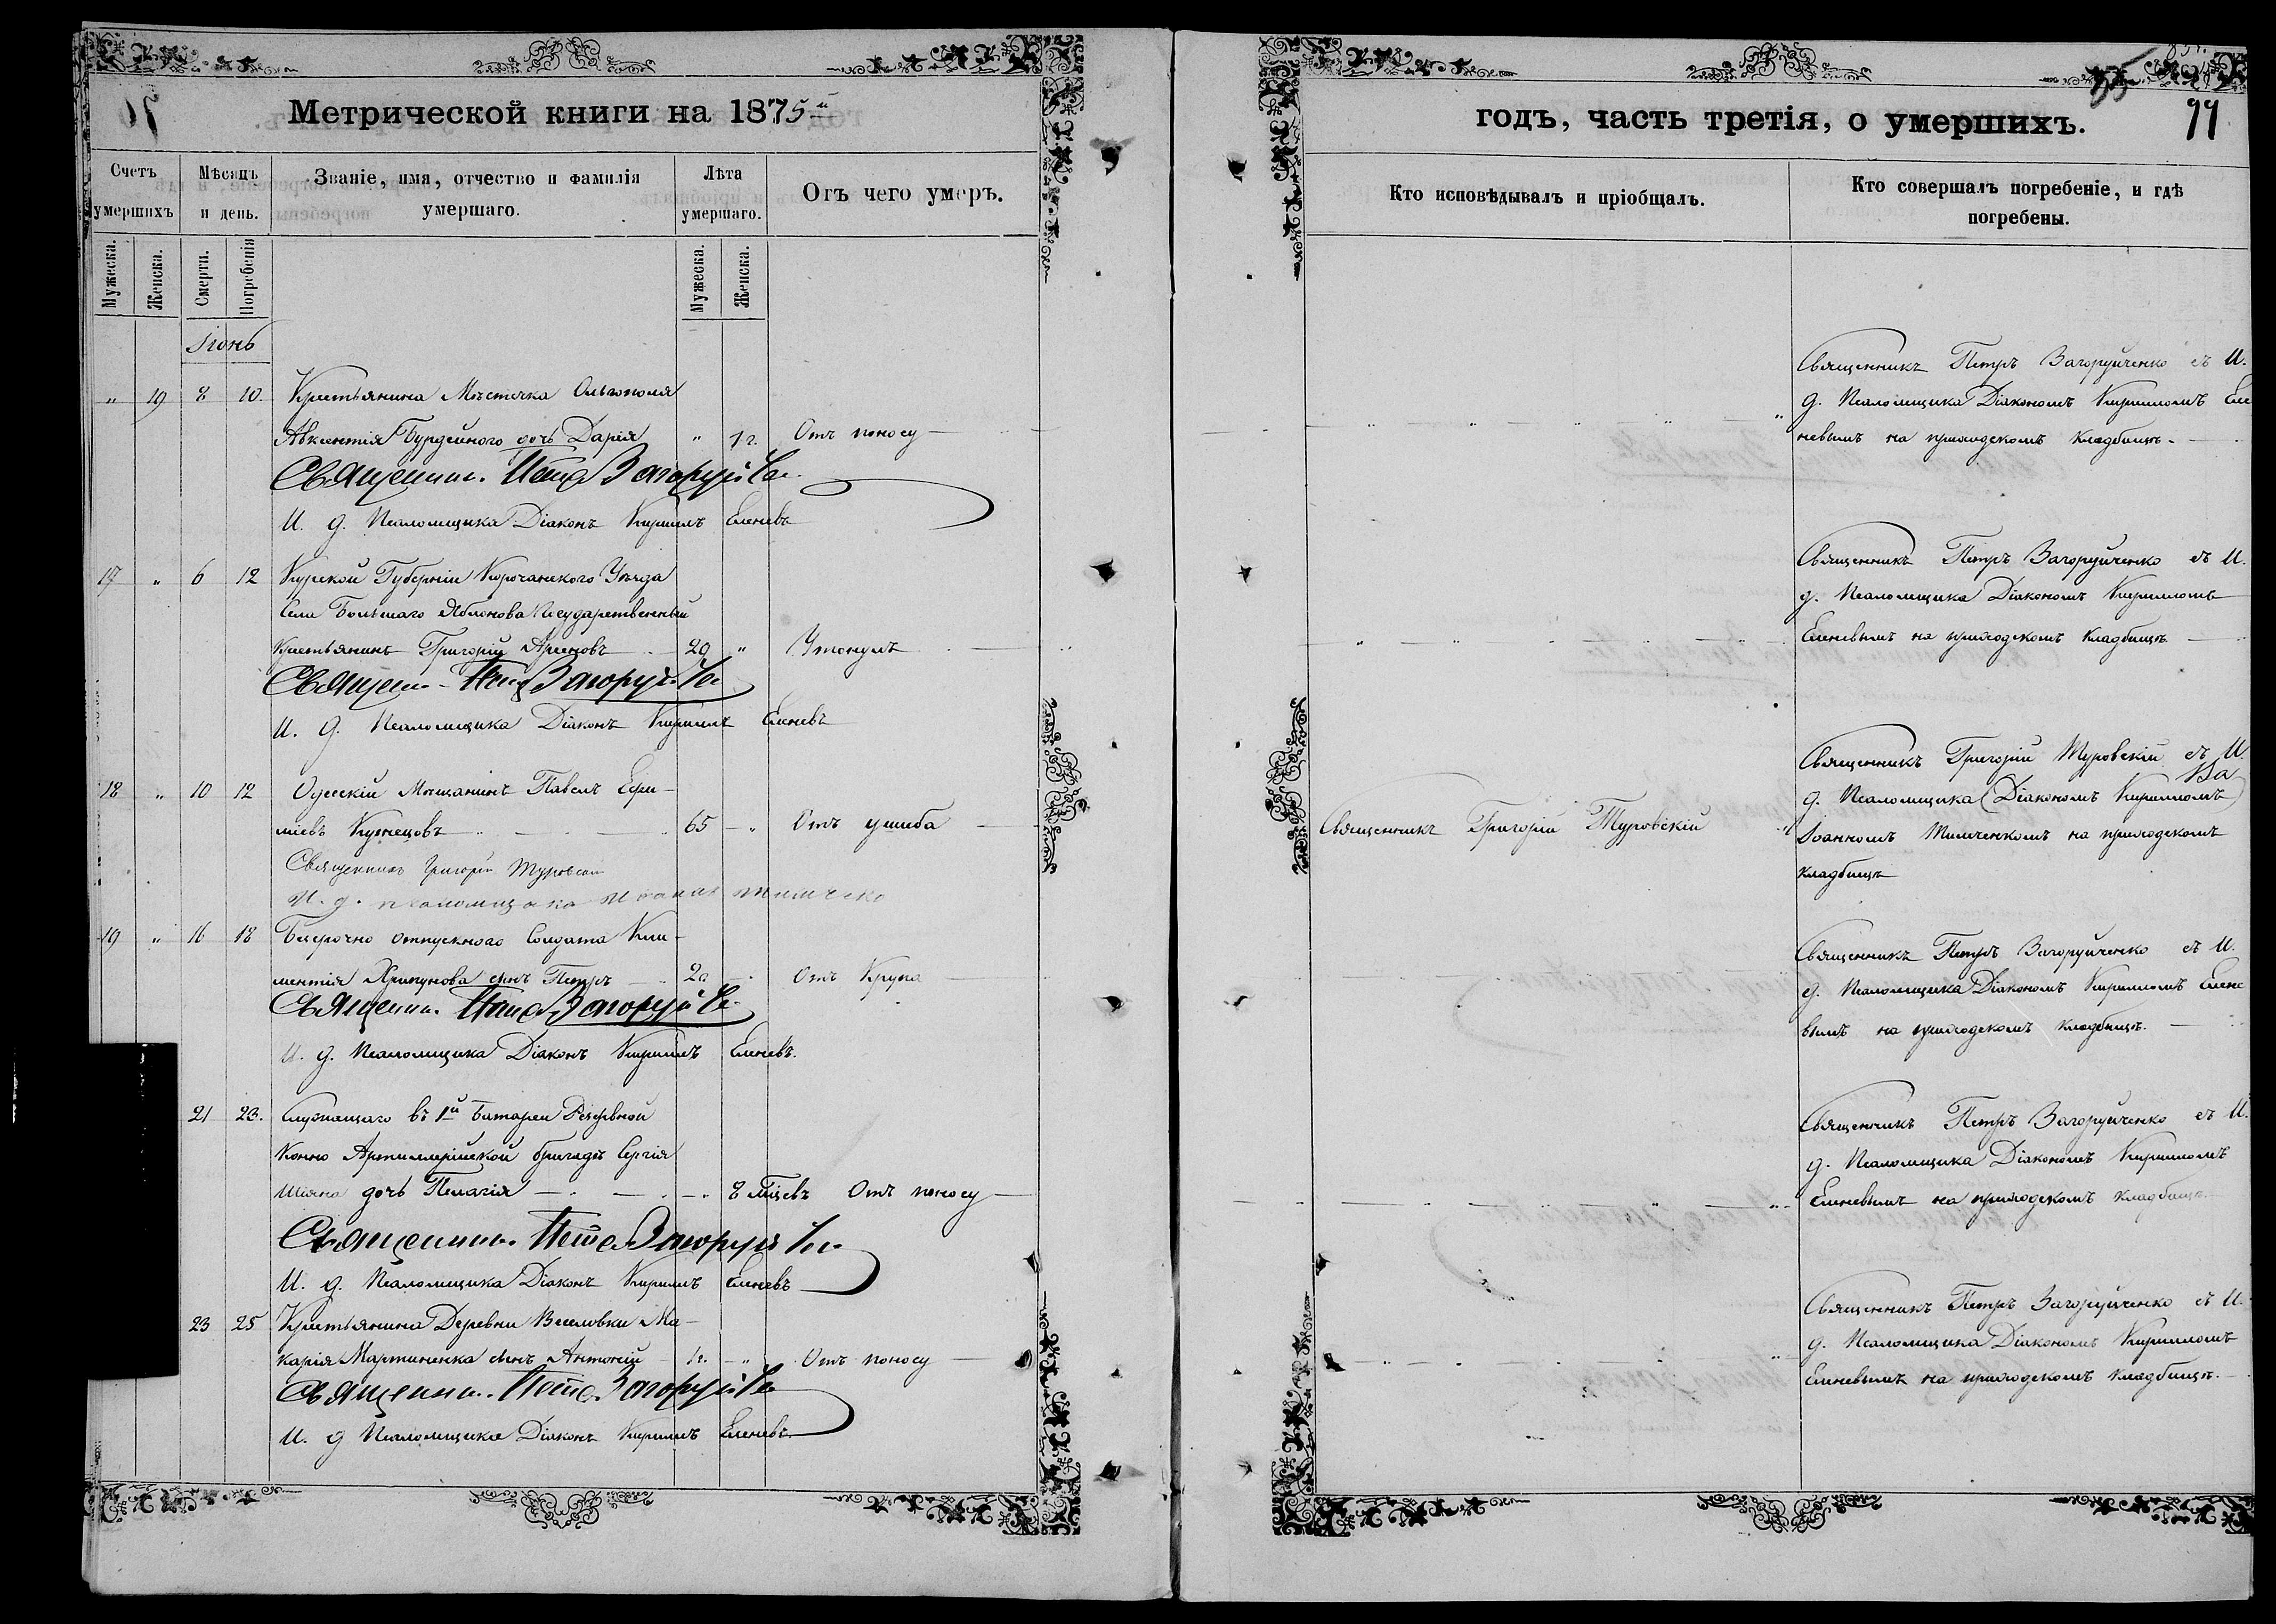 Метрической книги на 1875й
Счетъ умершихъ
Мѣсяцъ и день.
Званіе, имя, отчество и фамилія умершаго.
Лѣта умершаго.
Отъ чего умеръ.
Мужеска.
Женска.
Смерти.
Погребенія
Мужеска.
Женска.
Іюнь
" 19 8 10. Крестьянина Мѣстечка Ольгополя
Авксентія Бурдейного дочь Дарія " 1 г. Отъ поносу
Священник. Петр Загоруйче
И. д. Псаломщика Діаконъ Кирилъ Еленевъ
17 " 6 12 Курской Губерніи Корочанского Уѣзда
Села Большаго Яблонова Государственный
Крестьянинъ Григорій Арсеновъ 29 " Утонулъ
Священ. Петр Загоруйче
И. д. Псаломщика Діаконъ Кирилъ Еленевъ
18 " 10 12 Одесскій Мѣщанинъ Павелъ Ефи-
міевъ Кузнецовъ 65 " Отъ ушиба
Священникъ Григорій Туровскій
И. д. псаломщика Иоаннъ Тимченко
19 " 16 18 Безсрочно отпускного Солдата Кли-
ментія Хрипунова сынъ Петръ 2 г. Отъ Крупа
Священник. Петр Загоруйче
И. д. Псаломщика Діаконъ Кирилъ Еленевъ.
21 23. Служащаго въ 1й Батареи Резервной
Конно Артиллерійской бригадѣ Сергія
Шіяна дочь Пелагія 8 мѣцевъ Отъ поносу
Священник. Петр Загоруйче
И. д. Псаломщика Діаконъ Кирилъ Еленевъ
23 25 Крестьянина Деревни Веселовки Ма-
карія Мартиненка сынъ Антоній 1 г. " Отъ поносу
Священник. Петр Загоруйче
И. д Псаломщика Діаконъ Кирилъ Еленевъ
годъ, часть третія, о умершихъ.
Кто исповѣдывалъ и пріобщалъ.
Кто совершалъ погребеніе, и гдѣ погребены.
Священникъ Петръ Загоруйченко съ И.
д. Псаломщика Діакономъ Кирилломъ Еле
невымъ на приходскомъ кладбищѣ.
Священникъ Петръ Загоруйченко съ И.
д. Псаломщика Діакономъ Кирилломъ
Еленевымъ на приходскомъ кладбищѣ
Священникъ Григорій Туровскій съ И.
д. Псаломщика (Діакономъ Кирилломъ)
Священникъ Григорій Туровскій Іоанномъ Тимченкомъ на приходскомъ
кладбищѣ
Священникъ Петръ Загоруйченко съ И.
д. Псаломщика Діакономъ Кирилломъ Елене
вымъ на приходскомъ кладбищѣ.
Священникъ Петръ Загоруйченко съ И.
д. Псаломщика Діакономъ Кирилломъ
Еленевымъ на приходскомъ кладбищѣ
Священникъ Петръ Загоруйченко съ И.
д. Псаломщика Діакономъ Кирилломъ
Еленевымъ на приходскомъ кладбищѣ.